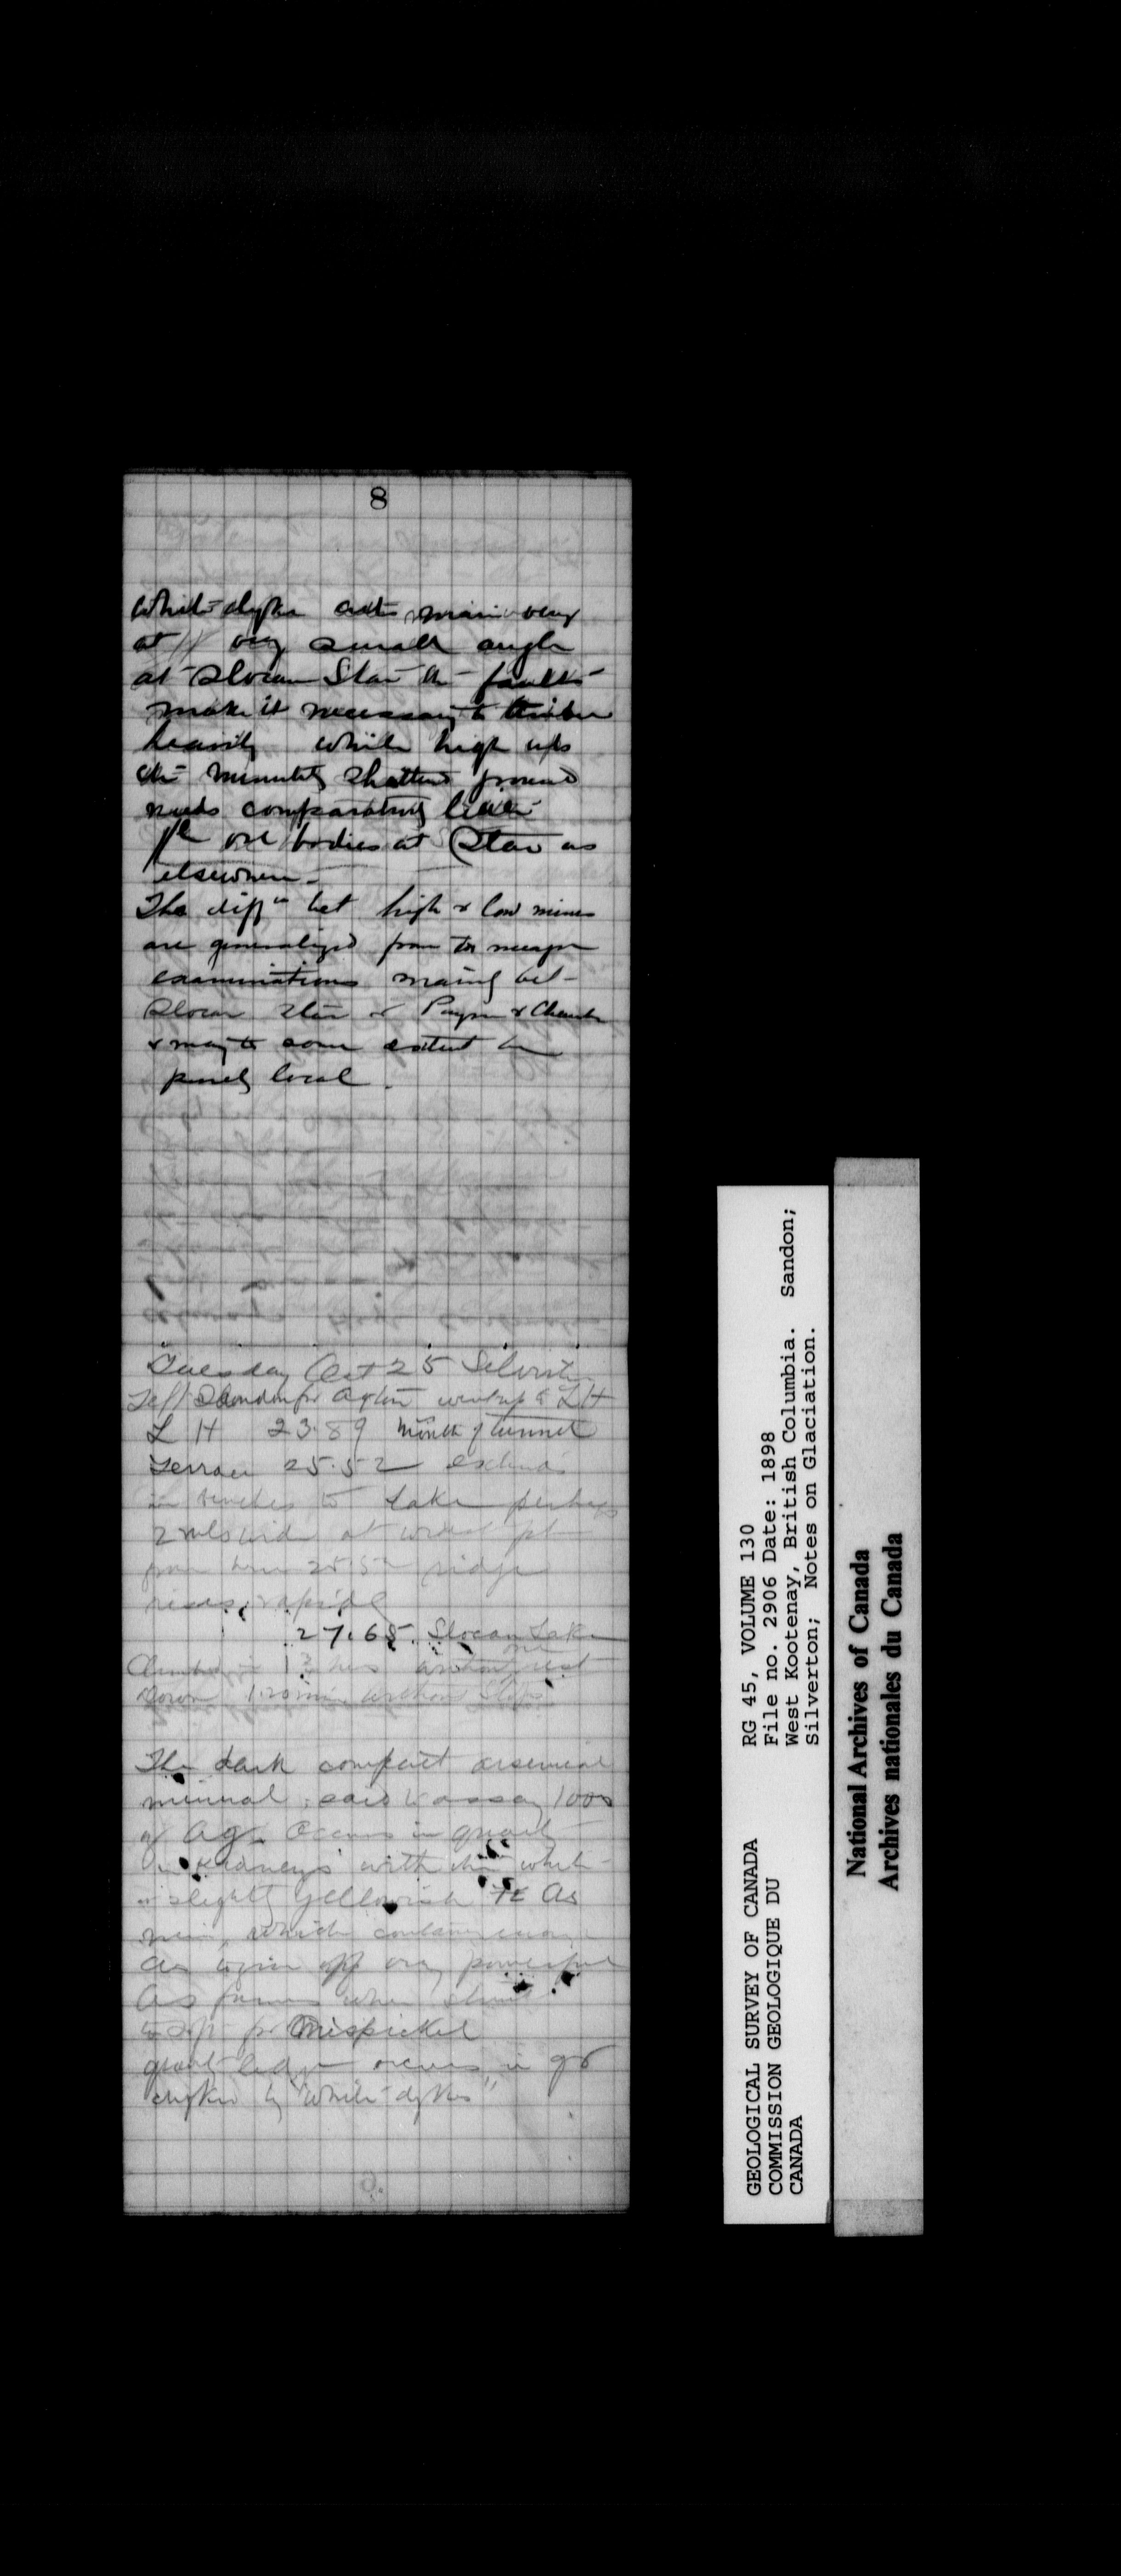 8
White dykes cut main vein
at very small angle
at Slocan Star the faults
make it necessary to timber
heavily while high ups
the minutely shattered ground
needs comparatively little
The ore bodies at Star as
elsewhere -
The diffn bet high & low mines
are generalized from too meagre
examinations mainly bet
Slocan Star & Payne &
& may to some extent be
purely local.
Tuesday Oct 25 Silverton
Left Sandon for went up to L H
L H 23.89 mouth of tunnel
Terrace 25.52 extends
in benches to Lake perhaps
2 mls wide at widest pt
from here 25.52 ridge
rises rapidly
27.65 Slocan Lake
Climbed in 1¾ hrs without one rest
Down 1.20 min without stops
The dark compact arsenical
mineral said to assay 1000
of Ag. Occurs in quartz
in kidneys with the white
or slightly yellowish Fe As
which contains enough
As to give off very powerful
As fumes when
for Mispickel
quartz ledge occurs in
by "white dykes"
GEOLOGICAL SURVEY OF CANADA
COMMISSION GEOLOGIQUE DU
CANADA
RG 45, VOLUME 130
File no. 2906 Date: 1898
West Kootenay, British Columbia. Sandon;
Silverton; Notes on Glaciation.
National Archives of Canada
Archives nationales du Canada